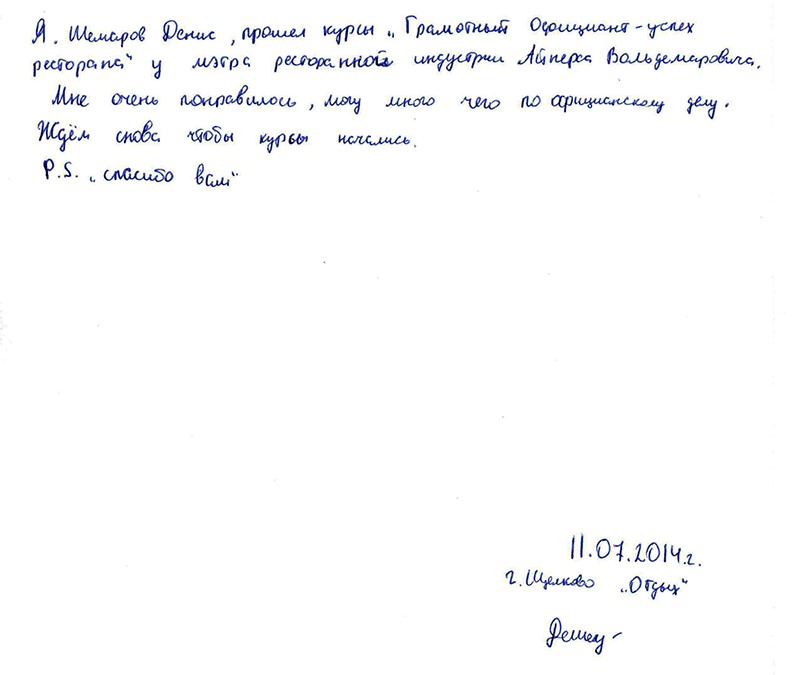 Я. Шемаров Денис, прошел курсы „Грамотный Официант-успех
ресторана" у мэтра ресторанной индустрии Айперса Вольдемаровича.
Мне очень понравилось, могу много чего по официанскому делу.
Ждём снова чтобы курсы начались.
P.S. „спасибо вам"
11.07.2014.г.
г. Щелково „Отдых"